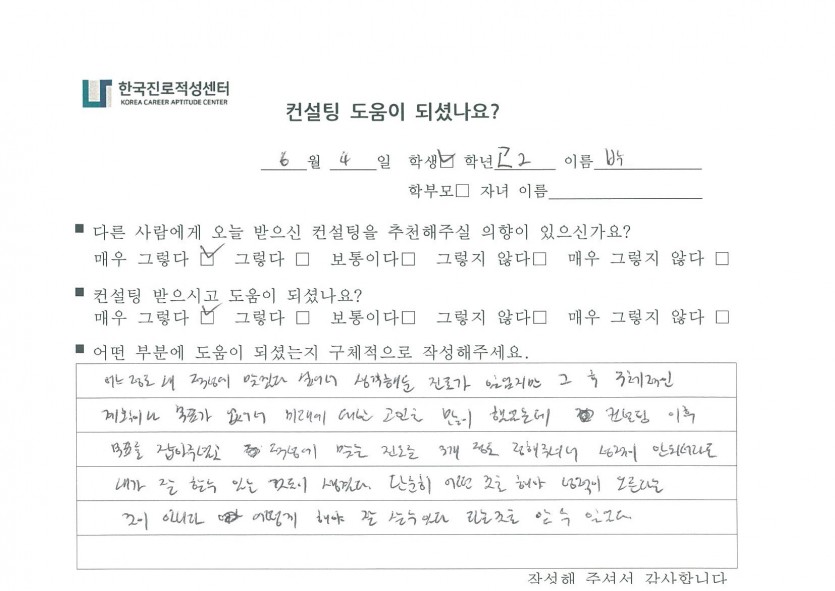 한국진로적성센터
KOREA CAREER APTITUDE CENTER
컨설팅 도움이 되셨나요?
6 월 4 일 학생☑ 학년 고2 이름 박
학부모□ 자녀 이름
■ 다른 사람에게 오늘 받으신 컨설팅을 추천해주실 의향이 있으신가요?
매우 그렇다 ☑ 그렇다 □ 보통이다□ 그렇지 않다□ 매우 그렇지 않다 □
■ 컨설팅 받으시고 도움이 되셨나요?
매우 그렇다 ☑ 그렇다 □ 보통이다□ 그렇지 않다□ 매우 그렇지 않다 □
■ 어떤 부분에 도움이 되셨는지 구체적으로 작성해주세요.
어느 정도 내 적성에 맞겠다 싶어서 생각해둔 진로가 있었지만 그 후 구체적인
계획이나 목표가 없어서 미래에 대한 고민을 많이 했었는데 컨설팅 이후
목표를 잡아주셨고 적성에 맞는 진로를 3개 정도 정해주셔서 성적이 안되더라도
내가 잘 할수 있는 것들이 생겼다. 단순히 어떤 것을 해야 성적이 오른다는
것이 아니라 어떻게 해야 잘 할수있다 라는것을 알 수 있었다
작성해 주셔서 감사합니다